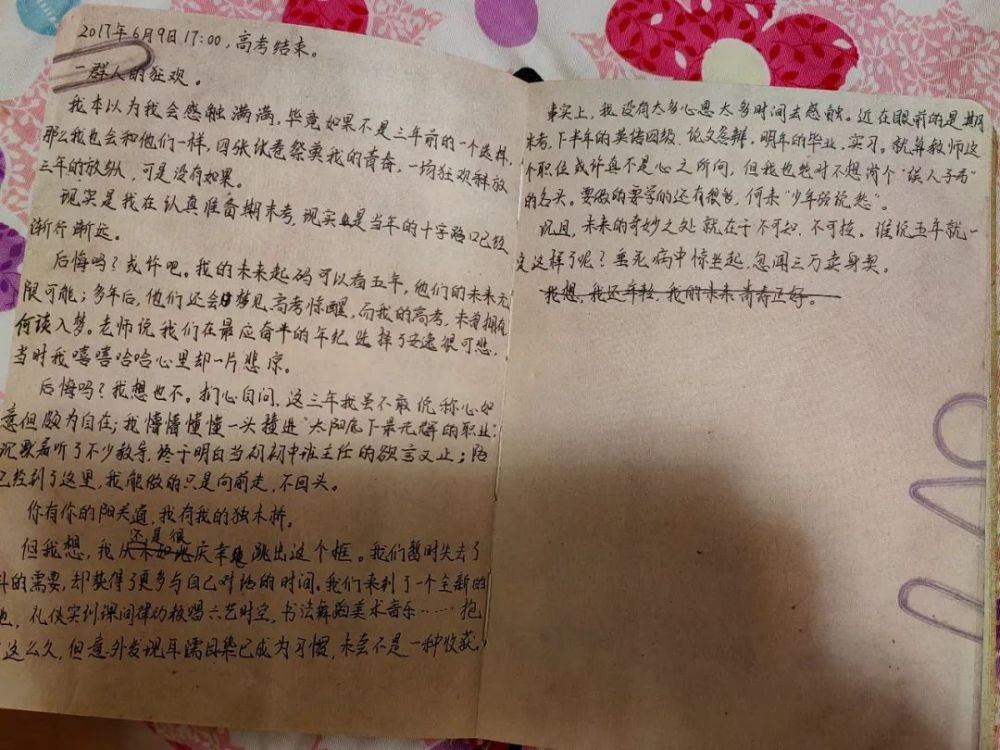 2017年6月9日17:00,高考结束。
一群人的狂欢。
我本以为我会感触满满,毕竟如果不是三年前的一个选择,
那么我也会和他们一样,四张试卷祭奠我的青春,一场狂欢释放
三年的放纵,可是没有如果。
现实是我在认真准备期末考,现实是当年的十字路口已经
渐行渐远。
后悔吗?或许吧。我的未来起码可以看五年,他们的未来无
限可能;多年后,他们还会梦见高考惊醒,而我的高考,未曾拥有
何谈入梦。老师说我们在最应奋斗的年纪选择了安逸很可悲,
当时我嘻嘻哈哈心里却一片悲凉。
后悔吗?我想也不。扪心自问,这三年我虽不敢说称心如
意但颇为自在;我懵懵懂懂一头撞进"太阳底下最光辉的职业"
沉默着听了不少教导,终于明白当初初中班主任的欲言又止;路
已经到了这里,我能做的只是向前走,不回头。
你有你的阳关道,我有我的独木桥。
但我想,我还是很庆幸跳出这个框。我们暂时失去了
斗的需要,却获得了更多与自己对话的时间。我们来到了一个全新的
地,礼仪实训课间律动校园六艺时空,书法舞蹈美术音乐……抱
了这么久,但意外发现耳濡目染已成为习惯,未尝不是一种收获。
事实上,我没有太多心思太多时间去感触。近在眼前的是期
末考,下半年的英语四级、论文答辩,明年的毕业、实习。就算教师这
个职位或许真不是心之所向,但我也绝对不想背个"误人子弟"
的名头。要做的要学的还有很多,何来"少年强说愁"。
况且,未来的奇妙之处就在于不可知、不可控。谁说五年就一
定这样了呢?垂死病中惊坐起,忽闻三万卖身契。
我想,我还年轻,我的未来青春正好。